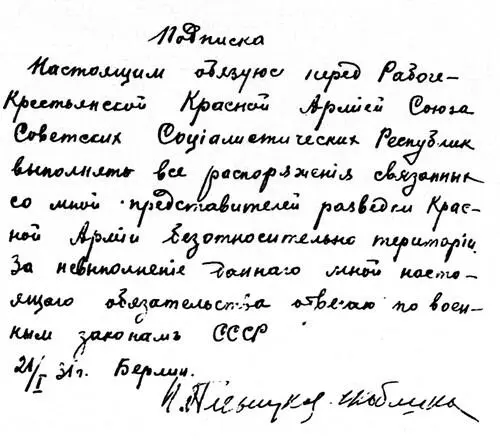 Подписка
Настоящим обязуюс перед Рабоче-
Крестьянской Красной Арміей Союза
Советских Соціалистических Республик
выполнять все распоряженія связанных
со мной представителей разведки Крас-
ной Арміи безотносительно територіи.
За невыполненіе даннаго мной насто-
ящаго обязательства отвечаю по воен-
ным законамъ СССР
21/I 31г. Берлин.
Н. Плевицкая-Скоблина